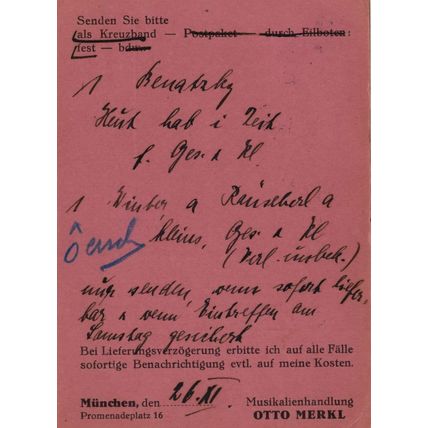 Senden Sie bitte
als Kreuzband — Postpaket — durch Eilboten:
fest — bdw.
1 Benatzky
Heut hab i Zeit
f. Ges. u Kl
1 Winter a Räuscherl a
kleins, Ges. u Kl
(Verl. unbek.)
nur senden, wenn sofort liefer-
bar u wenn Eintreffen am
Samstag gesichert
Bei Lieferungsverzögerung erbitte ich auf alle Fälle
sofortige Benachrichtigung evtl. auf meine Kosten.
München, den 26. XI. Musikalienhandlung
Promenadeplatz 16 OTTO MERKL